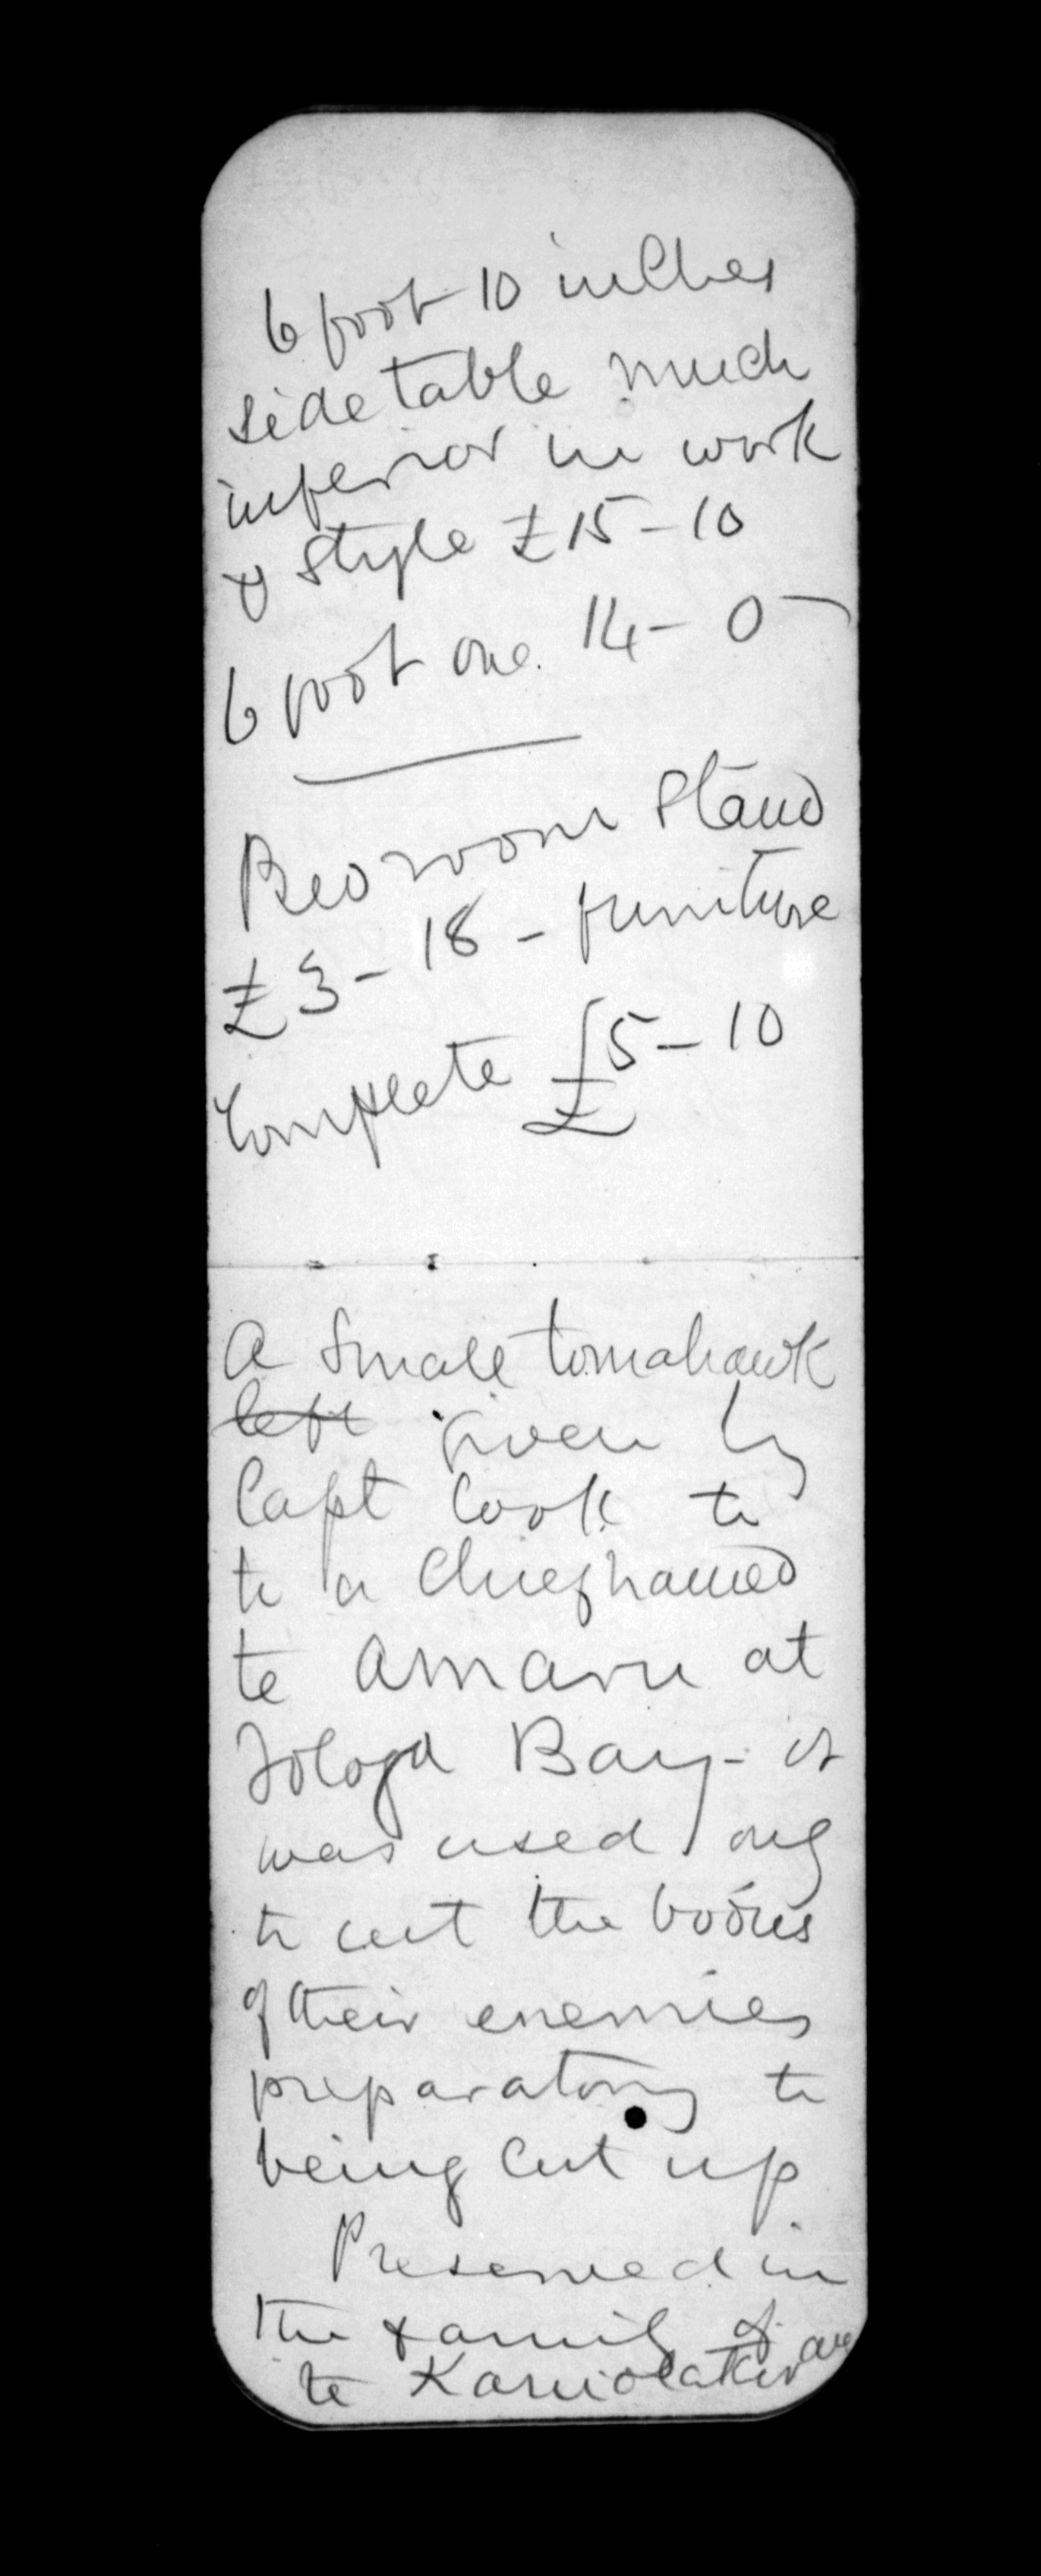 6 foot 10 inches
side table much
inferior in work
& style £15-10
6 foot one 14-0
Bedroom Stand
£3-18- furniture
Complete £5-10
A small tomahawk
left given by
Capt Cook to
to a Chief named
te Amaru at
Tologa Bay - it
was used only
to cut the bodies
of their enemies
preparatory to
being cut up
Preserved in
the family of
te Kani